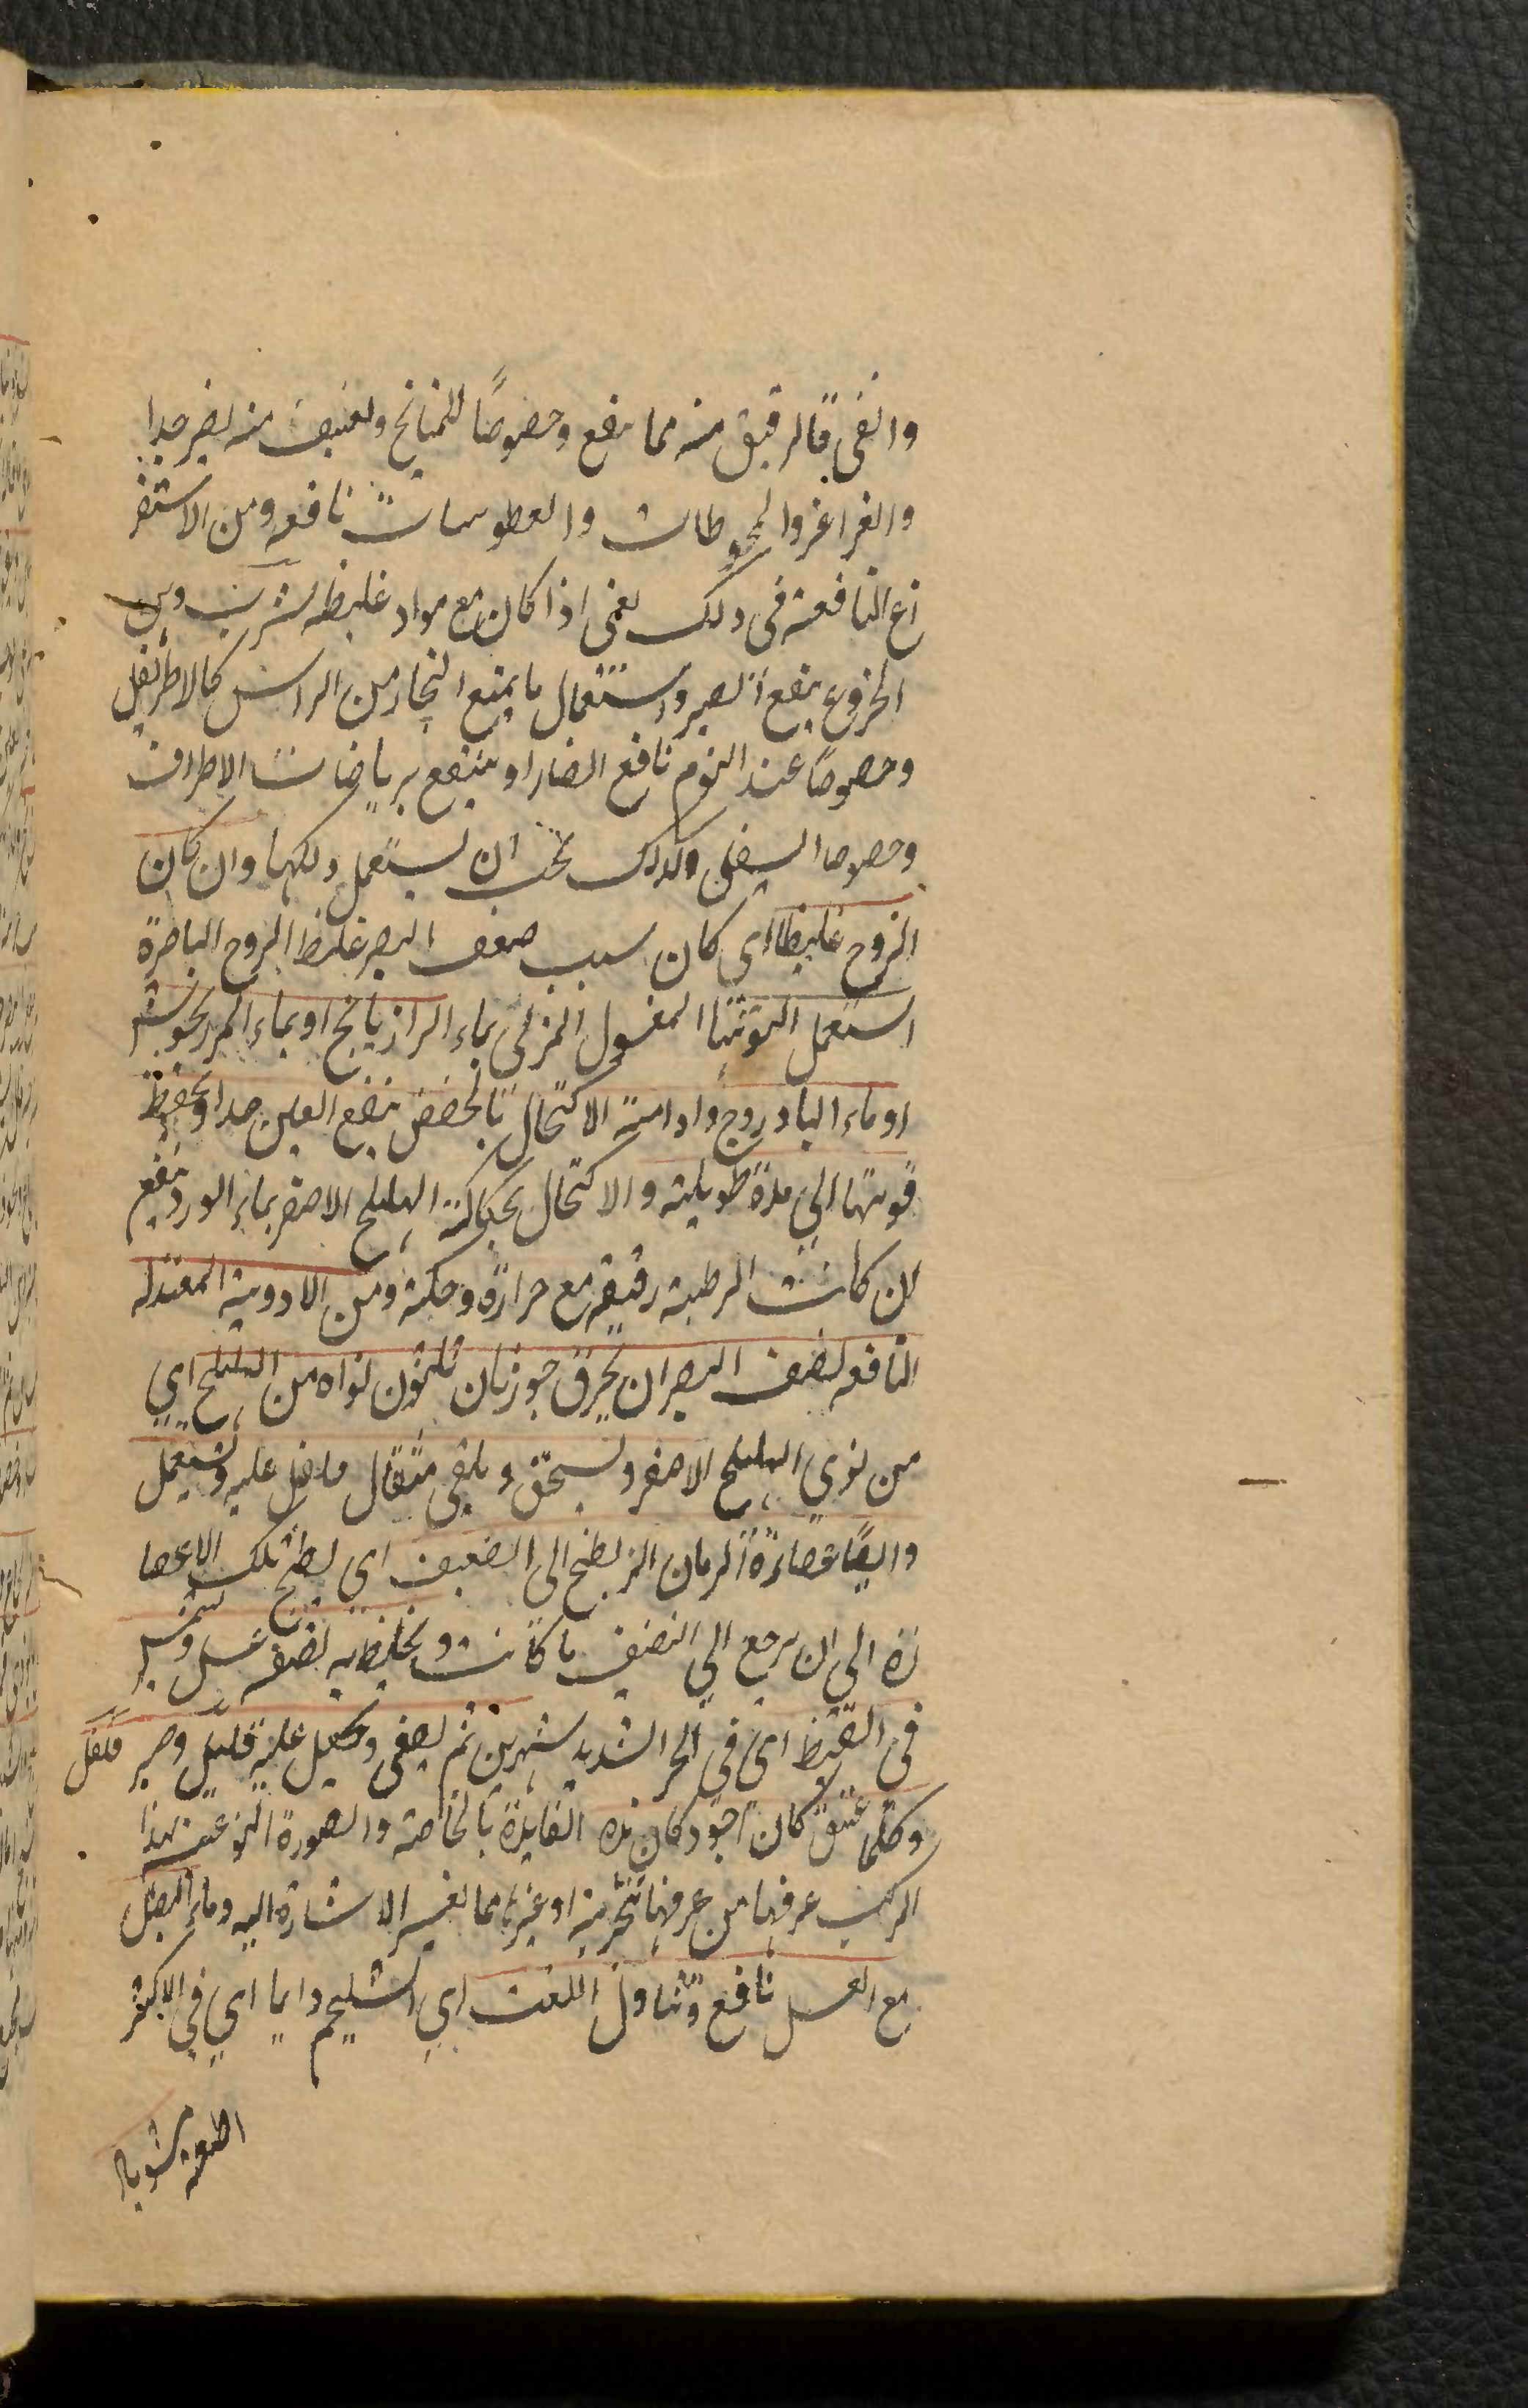 والقى فالرقيق منه مما ينفع وخصوصًا للمشايخ والعنيف منه يضر جدا
والغراغر والمخوطات والعطوسات نافعه ومن الاستفر
اغ النافعة فى ذلك يعنى اذا كان مع مواد غليظه شرب دهن
الخروع بنقع الصبر واستعمال ما يمنع البخار من الراس كالاطريفل
وخصوصًا عند النوم نافع ايضا او ينتفع برياضات الاطراف
وخصوصا السفلى وكذلك يجب ان يستعمل دلكها وان كان
الروح غليظا اى كان سبب ضعف البصر غلظ الروح الباصرة
استعمل التوتيا المغسول المربى بماء الرازيانج او بماء المرزنجوش
او ماء البادروج وادامة الاكتحال بالحضض ينفع العين جدا ويحفظ
قوتها الى مدة طويلة والاكتحال بحكاكة الهليلج الاصفر بماء الورد ينفع
ان كانت الرطبة رقيقه مع حرارة وحكة ومن الادوية المعتدله
النافعه لضعف البصر ان يحرق جوزتان ثلثون نواه من الهليلج اي
من نوي الهليلج الاصفر ويسحق ويلقى مثقال فلفل عليه ويستعمل
وايضًا عصارة الرمان المز يطبخ الى النصف اى يطبخ تلك الاعصا
رة الي ان يرجع الي النصف ما كانت ويخلط به نصفه عسل ويشمس
فى القيظ اى فى الحر الشديد شهرين ثم يصفى ويجعل عليه قليل وصبر فلفل
وكلما عتق كان اجود كان هذه الفايدة بالخاصة والصورة النوعية لهذا
المركب عرفها من عرفها بتجربة او غيرها مما لغير الاشارة اليه وماء البصل
مع العسل نافع وتناول اللفت اي الشليجم دايما اي في الاكثر
اطعمة مشويا